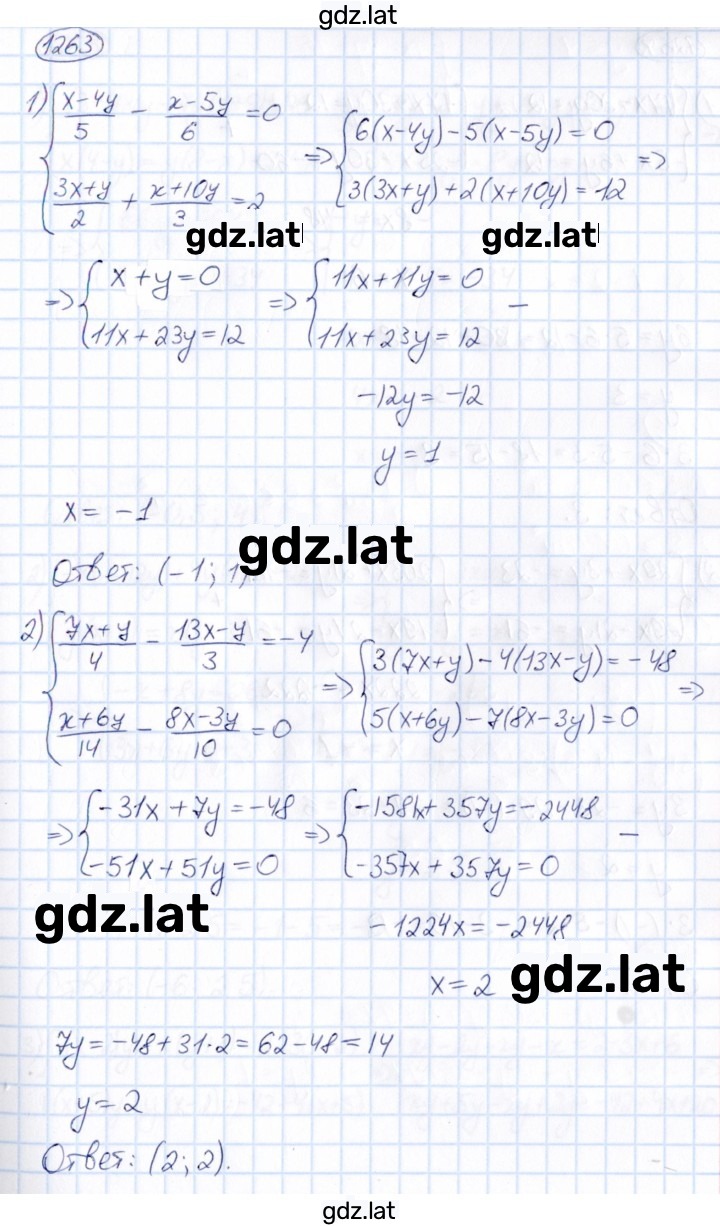 gdz.lat
1263
1) { (x-4y)/5 - (x-5y)/6 = 0
(3x+y)/2 + (x+10y)/3 = 2
=> { 6(x-4y)-5(x-5y)=0
3(3x+y)+2(x+10y)=12 =>
gdz.lat gdz.lat
=> { x+y=0
11x+23y=12
=> { 11x+11y=0
11x+23y=12 -
-12y=-12
y=1
x=-1
gdz.lat
Ответ: (-1; 1).
2) { (7x+y)/4 - (13x-y)/3 = -4
(x+6y)/14 - (8x-3y)/10 = 0
=> { 3(7x+y)-4(13x-y)=-48
5(x+6y)-7(8x-3y)=0 =>
=> { -31x+7y=-48
-51x+51y=0
=> { -1581x+357y=-2448
-357x+357y=0 -
gdz.lat
-1224x=-2448
x=2
gdz.lat
7y=-48+31·2=62-48=14
y=2
Ответ: (2; 2).
gdz.lat